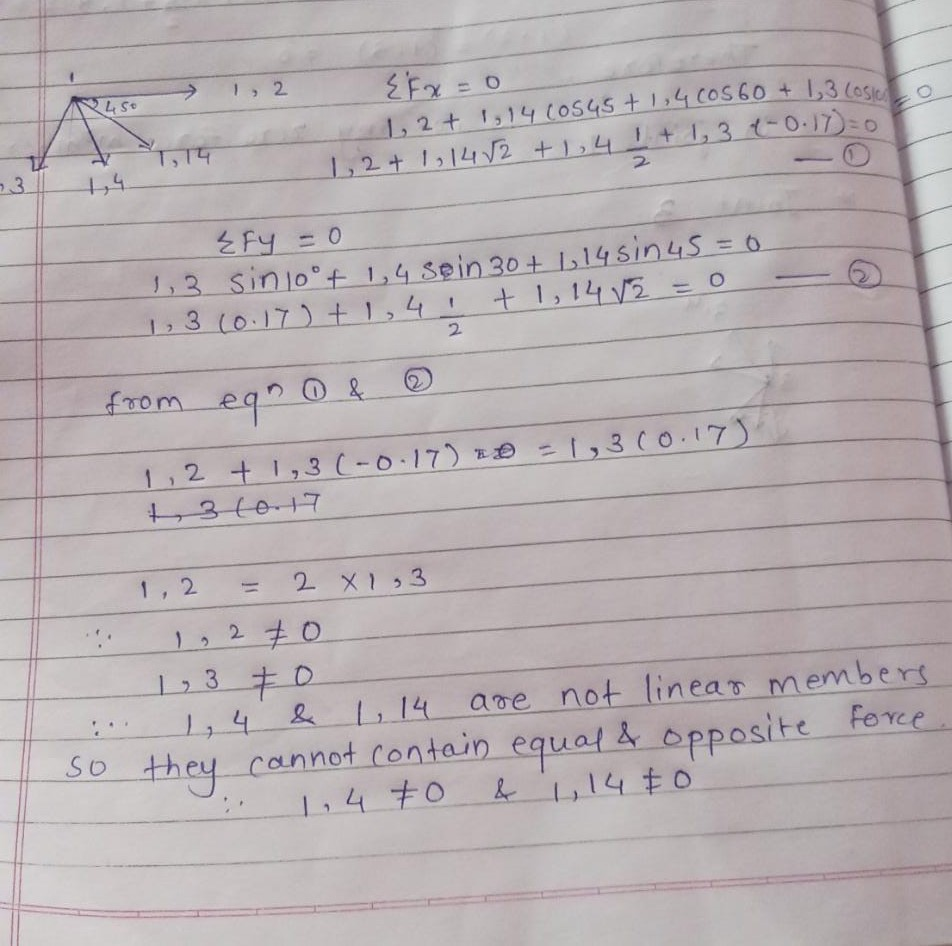 1 → 1, 2 ΣFx = 0
45° 1,2 + 1,14 cos45 + 1,4 cos60 + 1,3 = 0
1,14 1,2 + 1,14√2 + 1,4 1/2 + 1,3 (-0.17)=0
,3 1,4 — ①
ΣFy = 0
1,3 sin10° + 1,4 sein30 + 1,14 sin45 = 0
1,3 (0.17) + 1,4 1/2 + 1,14√2 = 0 — ②
from eqn ① & ②
1,2 + 1,3 (-0.17) = 1,3 (0.17)
1,3 (0.17
1,2 = 2 x 1,3
∵ 1,2 ≠ 0
1,3 ≠ 0
∴ 1,4 & 1,14 are not linear members
so they cannot contain equal & opposite force
∵ 1,4 ≠ 0 & 1,14 ≠ 0